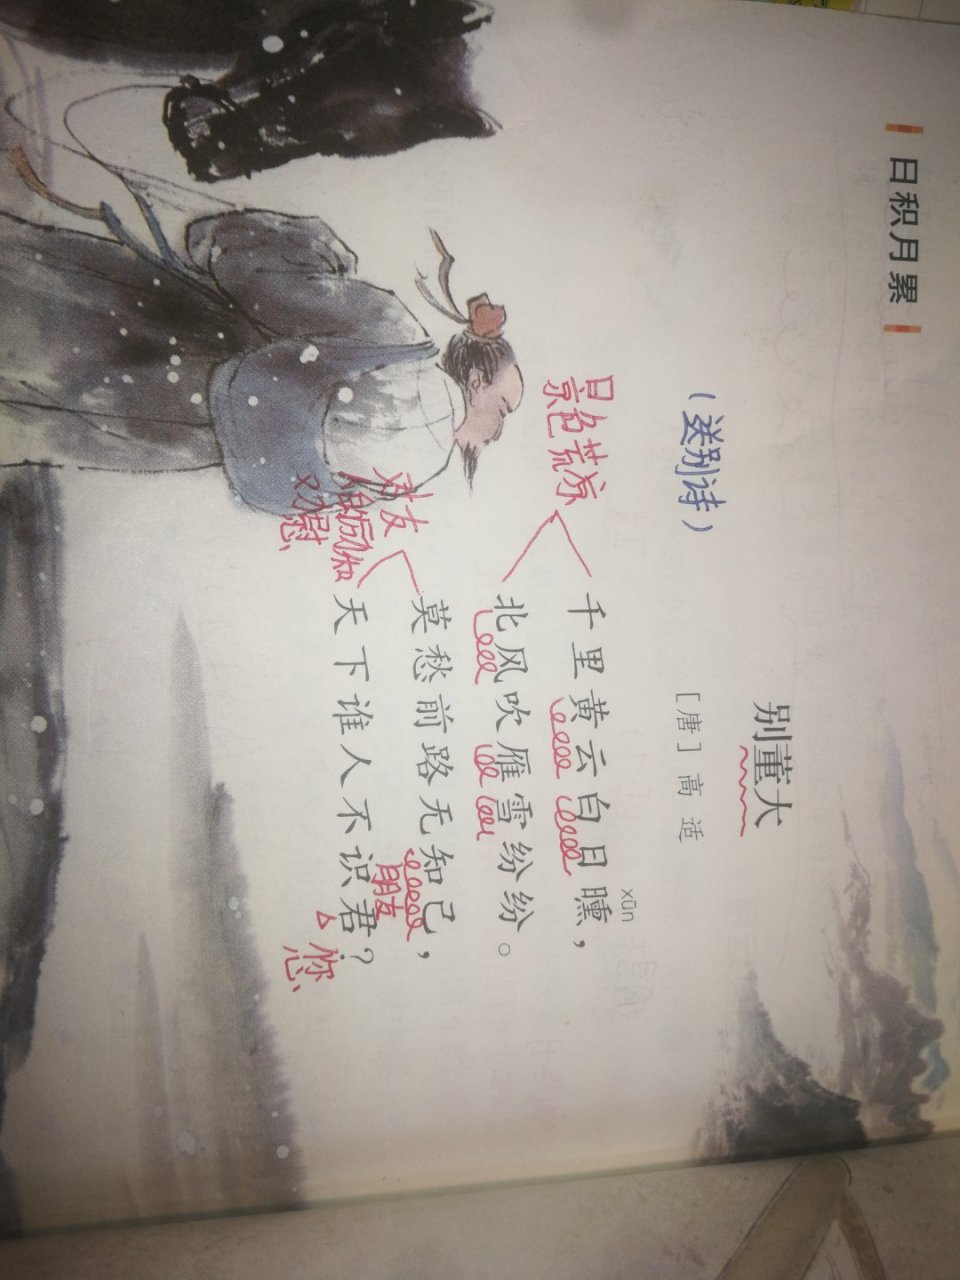 日积月累
(送别诗)
别董大
[唐]高适
xūn
景色荒凉
千里黄云白日曛，
北风吹雁雪纷纷。
对友
莫愁前路无知己，
朋友
天下谁人不识君？
您